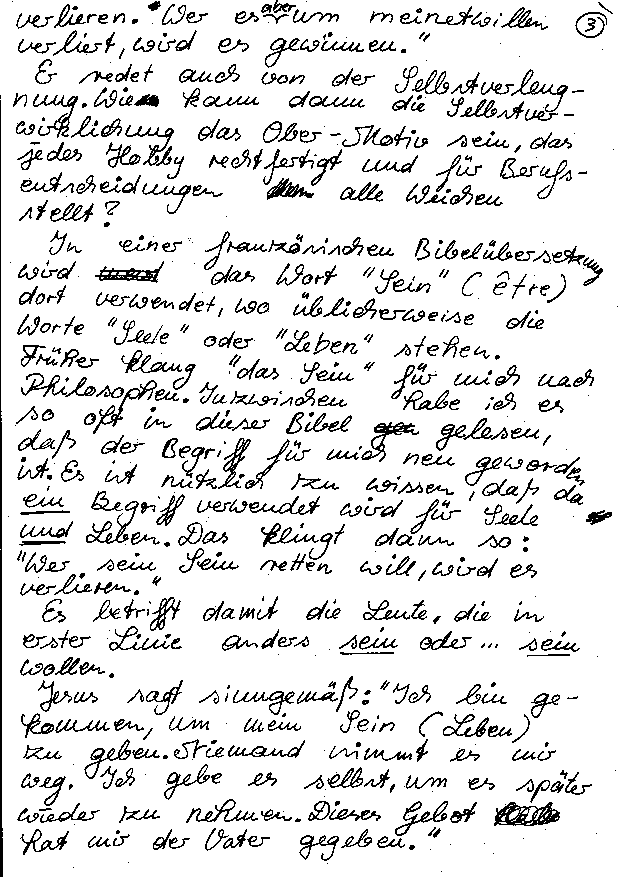 verlieren." Wer es aber um meinetwillen ③
verliert, wird es gewinnen."
Er redet auch von der Selbstverleug-
nung. Wie kann dann die Selbstver-
wirklichung das Ober-Motiv sein, das
jedes Hobby rechtfertigt und für Berufs-
entscheidungen alle Weichen
stellt?
In einer französischen Bibelübersetzung
wird das Wort "Sein" (être)
dort verwendet, wo üblicherweise die
Worte "Seele" oder "Leben" stehen.
Früher klang "das Sein" für mich nach
Philosophen. Inzwischen habe ich es
so oft in dieser Bibel gelesen,
daß der Begriff für mich neu geworden
ist. Es ist nützlich zu wissen, daß da
ein Begriff verwendet wird für Seele
und Leben. Das klingt dann so:
"Wer sein Sein retten will, wird es
verlieren."
Es betrifft damit die Leute, die in
erster Linie anders sein oder... sein
wollen.
Jesus sagt sinngemäß: "Ich bin ge-
kommen, um mein Sein (Leben)
zu geben. Niemand nimmt es mir
weg. Ich gebe es selbst, um es später
wieder zu nehmen. Dieses Gebot
hat mir der Vater gegeben."